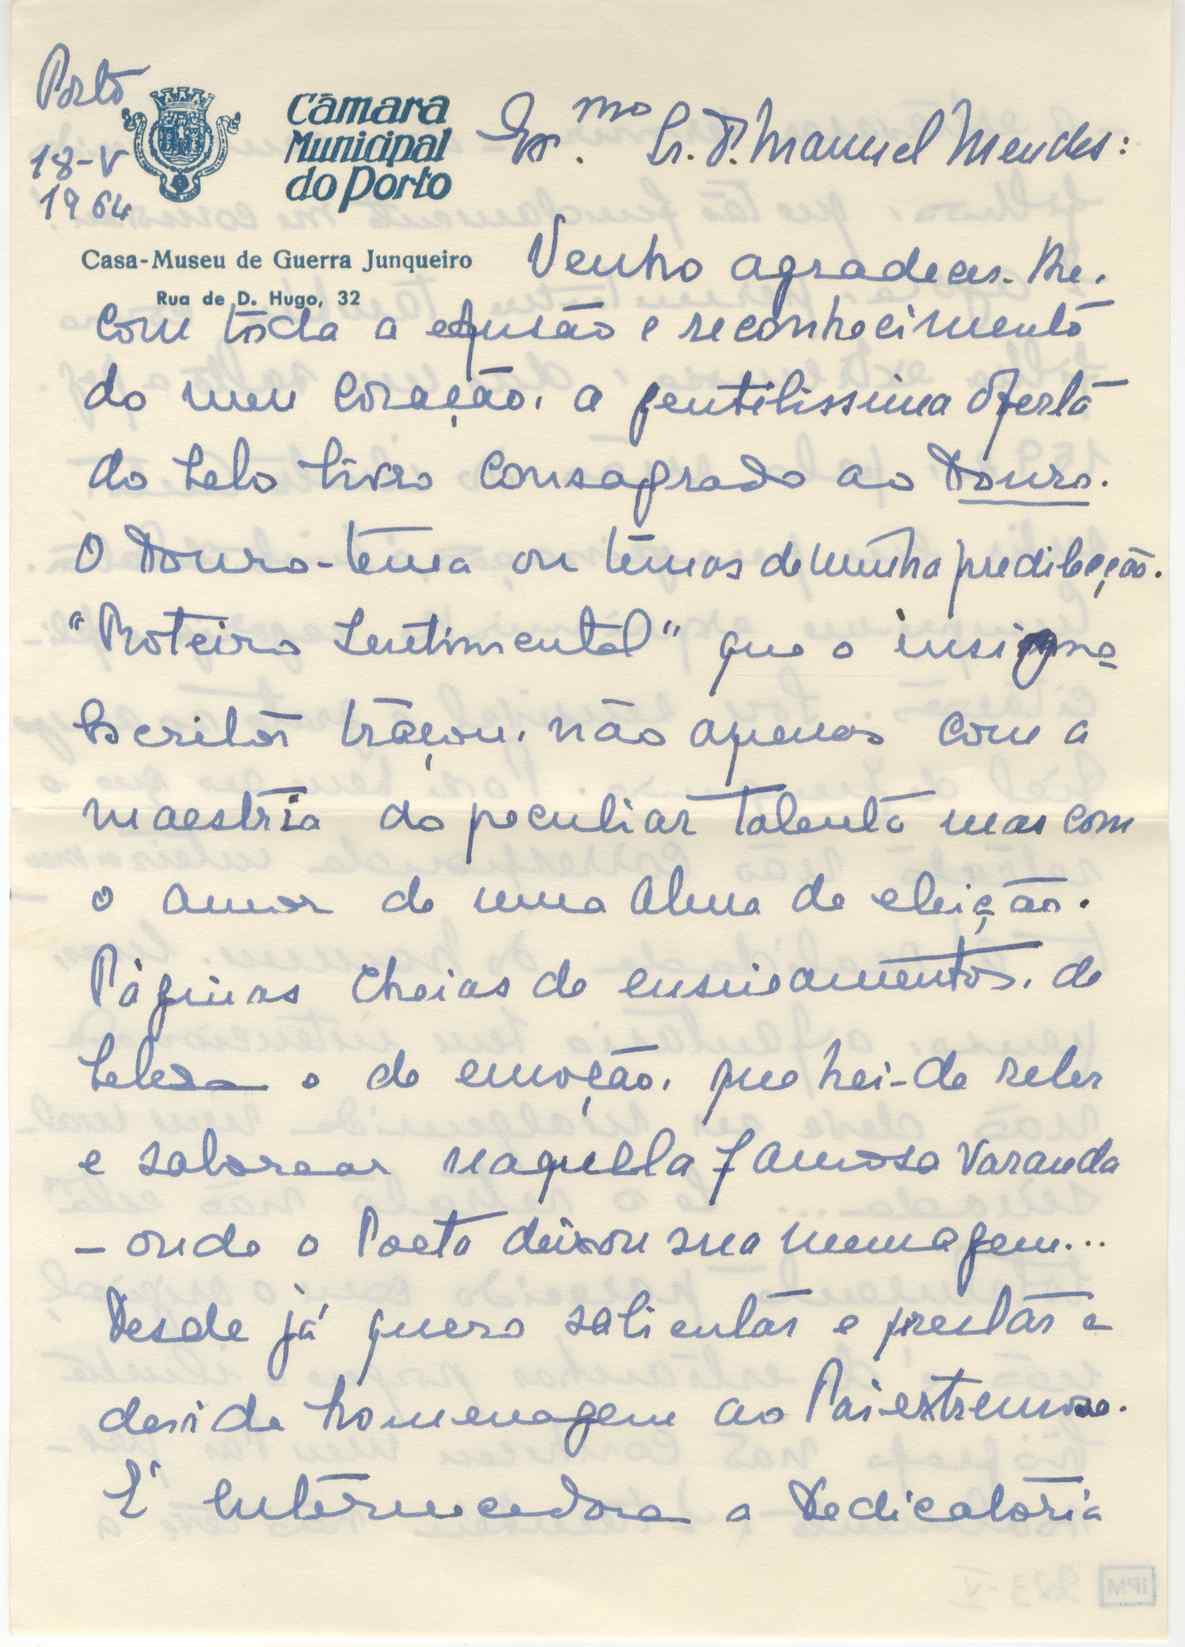 Porto
18-V
1964
Câmara
Municipal
do Porto
Casa-Museu de Guerra Junqueiro
Rua de D. Hugo, 32
Exmo. Sr. D. Manuel Mendes:
Venho agradecer-lhe,
com tôda a efusão e reconhecimento
do meu coração, a gentilissima oferta
do belo livro consagrado ao Douro.
O Douro-tema ou têmas de minha predilecção.
"Roteiro Sentimental" que o insigne
Escritor traçou, não apenas com a
maestria do peculiar talento mas com
o amor de uma alma de eleição.
Páginas cheias de ensinamentos, de
beleza e de emoção, que hei-de reler
e saborear naquela famosa varanda
- onde o Poeta deixou sua mensagem...
Desde já quero salientar e prestar a
devida homenagem ao Pai extremoso.
É enternecedora a Dedicatória
IPM